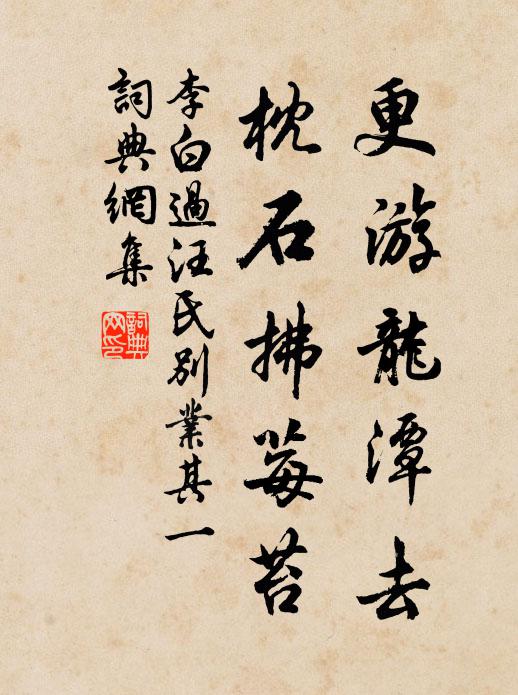 更游龍潭去
枕石拂莓苔
李白過汪氏別業其一
詞典網集
詞典网印